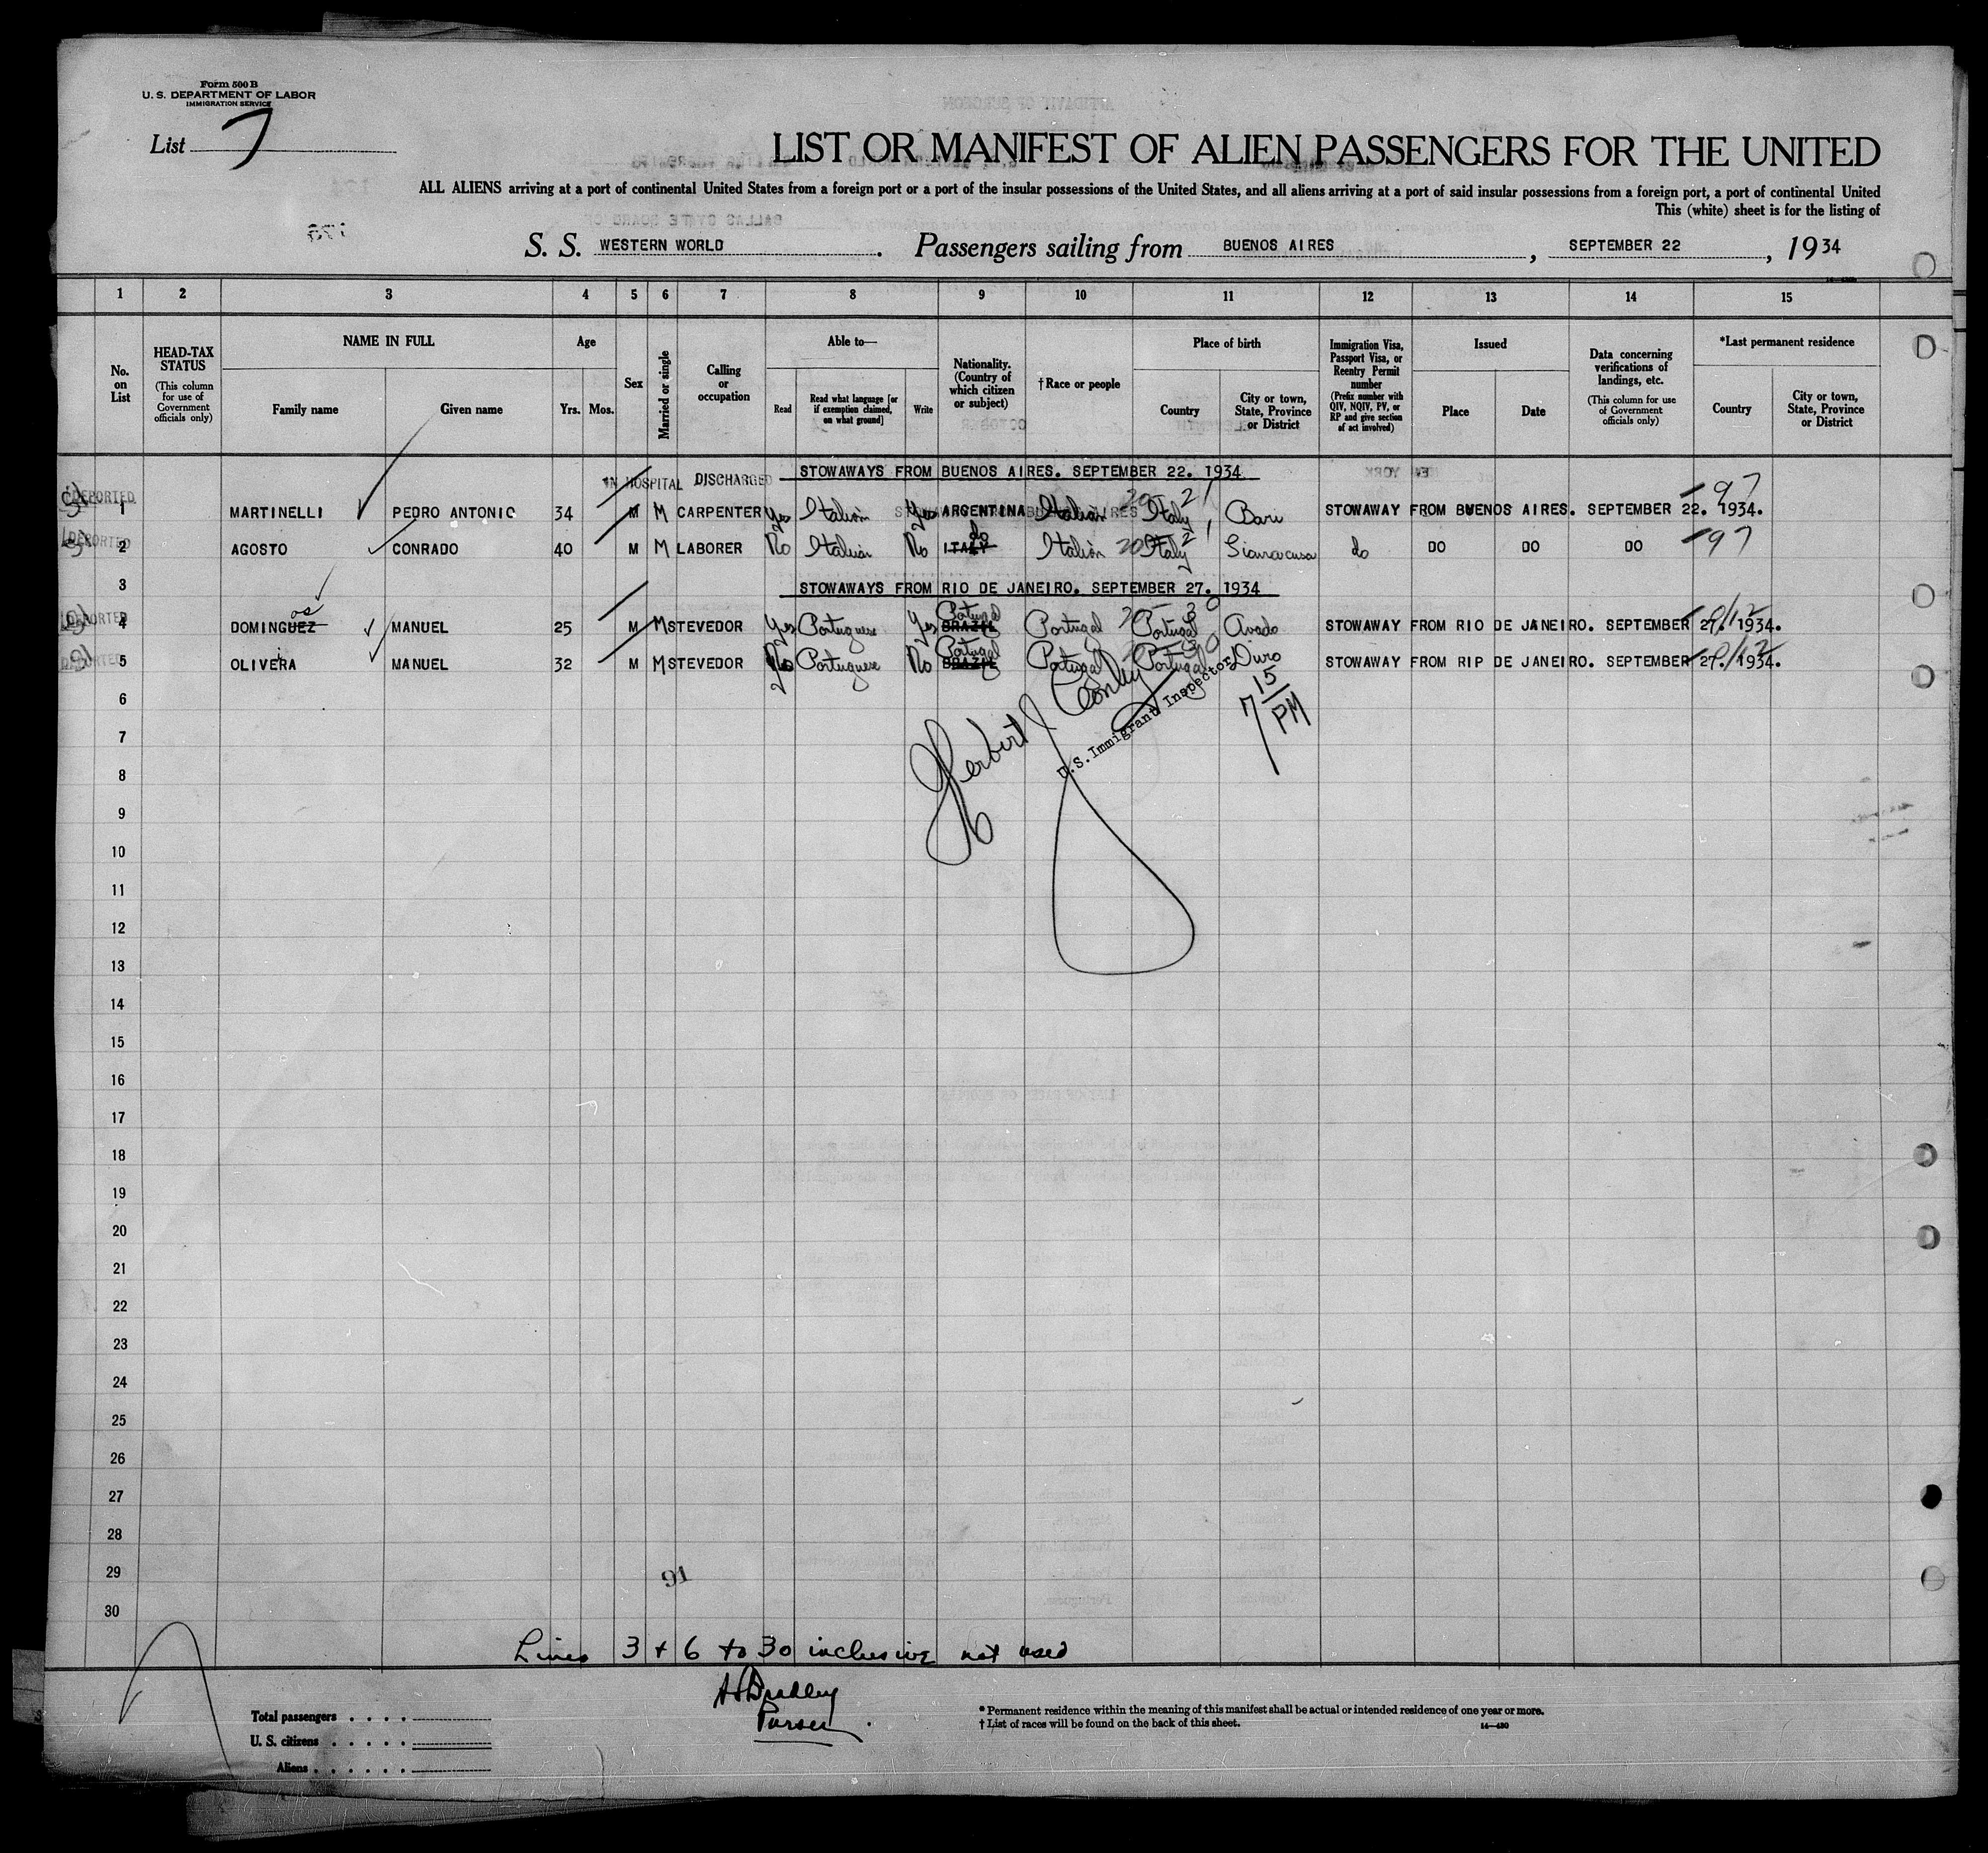 Form 500 B
U. S. DEPARTMENT OF LABOR
IMMIGRATION SERVICE
List 7
LIST OR MANIFEST OF ALIEN PASSENGERS FOR THE UNITED
ALL ALIENS arriving at a port of continental United States from a foreign port or a port of the insular possessions of the United States, and all aliens arriving at a port of said insular possessions from a foreign port, a port of continental United
This (white) sheet is for the listing of
S. S. WESTERN WORLD. Passengers sailing from BUENOS AIRES, SEPTEMBER 22, 1934
1 2 3 4 5 6 7 8 9 10 11 12 13 14 15
No. on List
HEAD-TAX STATUS (This column for use of Government officials only)
NAME IN FULL
Family name Given name
Age
Yrs. Mos.
Sex
Married or single
Calling or occupation
Able to—
Read Read what language [or if exemption claimed, on what ground] Write
Nationality. (Country of which citizen or subject)
† Race or people
Place of birth
Country City or town, State, Province or District
Immigration Visa, Passport Visa, or Reentry Permit number (Prefix number with QIV, NQIV, PV, or RP and give section of act involved)
Issued
Place Date
Data concerning verifications of landings, etc. (This column for use of Government officials only)
*Last permanent residence
Country City or town, State, Province or District
STOWAWAYS FROM BUENOS AIRES. SEPTEMBER 22. 1934
IN HOSPITAL DISCHARGED
DEPORTED 1 MARTINELLI PEDRO ANTONIO 34 M M CARPENTER Yes Italian Yes ARGENTINA Italian Italy Bari STOWAWAY FROM BUENOS AIRES. SEPTEMBER 22. 1934. 97
DEPORTED 2 AGOSTO CONRADO 40 M M LABORER No Italian No ITALY do Italian Italy do DO DO DO 97
3 STOWAWAYS FROM RIO DE JANEIRO. SEPTEMBER 27. 1934
DEPORTED 4 DOMINGUEZ os MANUEL 25 M M STEVEDOR Yes Portuguese Yes BRAZIL Portugal Portugal Portugal STOWAWAY FROM RIO DE JANEIRO. SEPTEMBER 27. 1934.
DEPORTED 5 OLIVERA MANUEL 32 M M STEVEDOR No Portuguese No BRAZIL Portugal Portugal Portugal Duro STOWAWAY FROM RIP DE JANEIRO. SEPTEMBER 27. 1934.
6
7
8
9
10
11
12
13
14
15
16
17
18
19
20
21
22
23
24
25
26
27
28
29
30
Herbert J Conley
U.S. Immigrant Inspector
7 15 PM
91
Lines 3 + 6 to 30 inclusive not used
Bradley
Purser
Total passengers
U. S. citizens
Aliens
* Permanent residence within the meaning of this manifest shall be actual or intended residence of one year or more.
† List of races will be found on the back of this sheet.
14—430